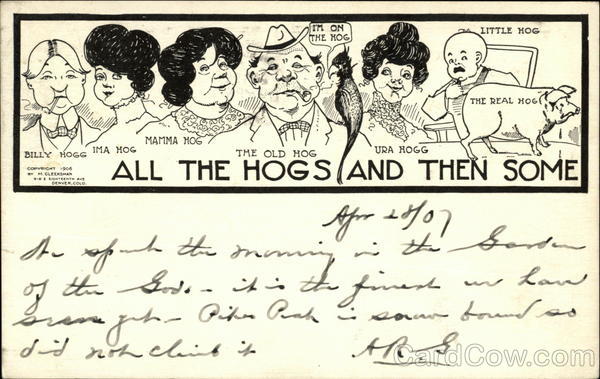 I'M ON THE HOG
LITTLE HOG
THE REAL HOG
BILLY HOGG
IMA HOG
MAMMA HOG
THE OLD HOG
URA HOGG
COPYRIGHT 1906
BY M. CLEEKSMAN
EIGHTEENTH AVE
DENVER, COLO.
ALL THE HOGS AND THEN SOME
Apr 28/07
We spent the morning in the Garden
of the Gods - it is the finest we have
seen yet - Pikes Peak is snow bound so
did not climb it A R G
CardCow.com